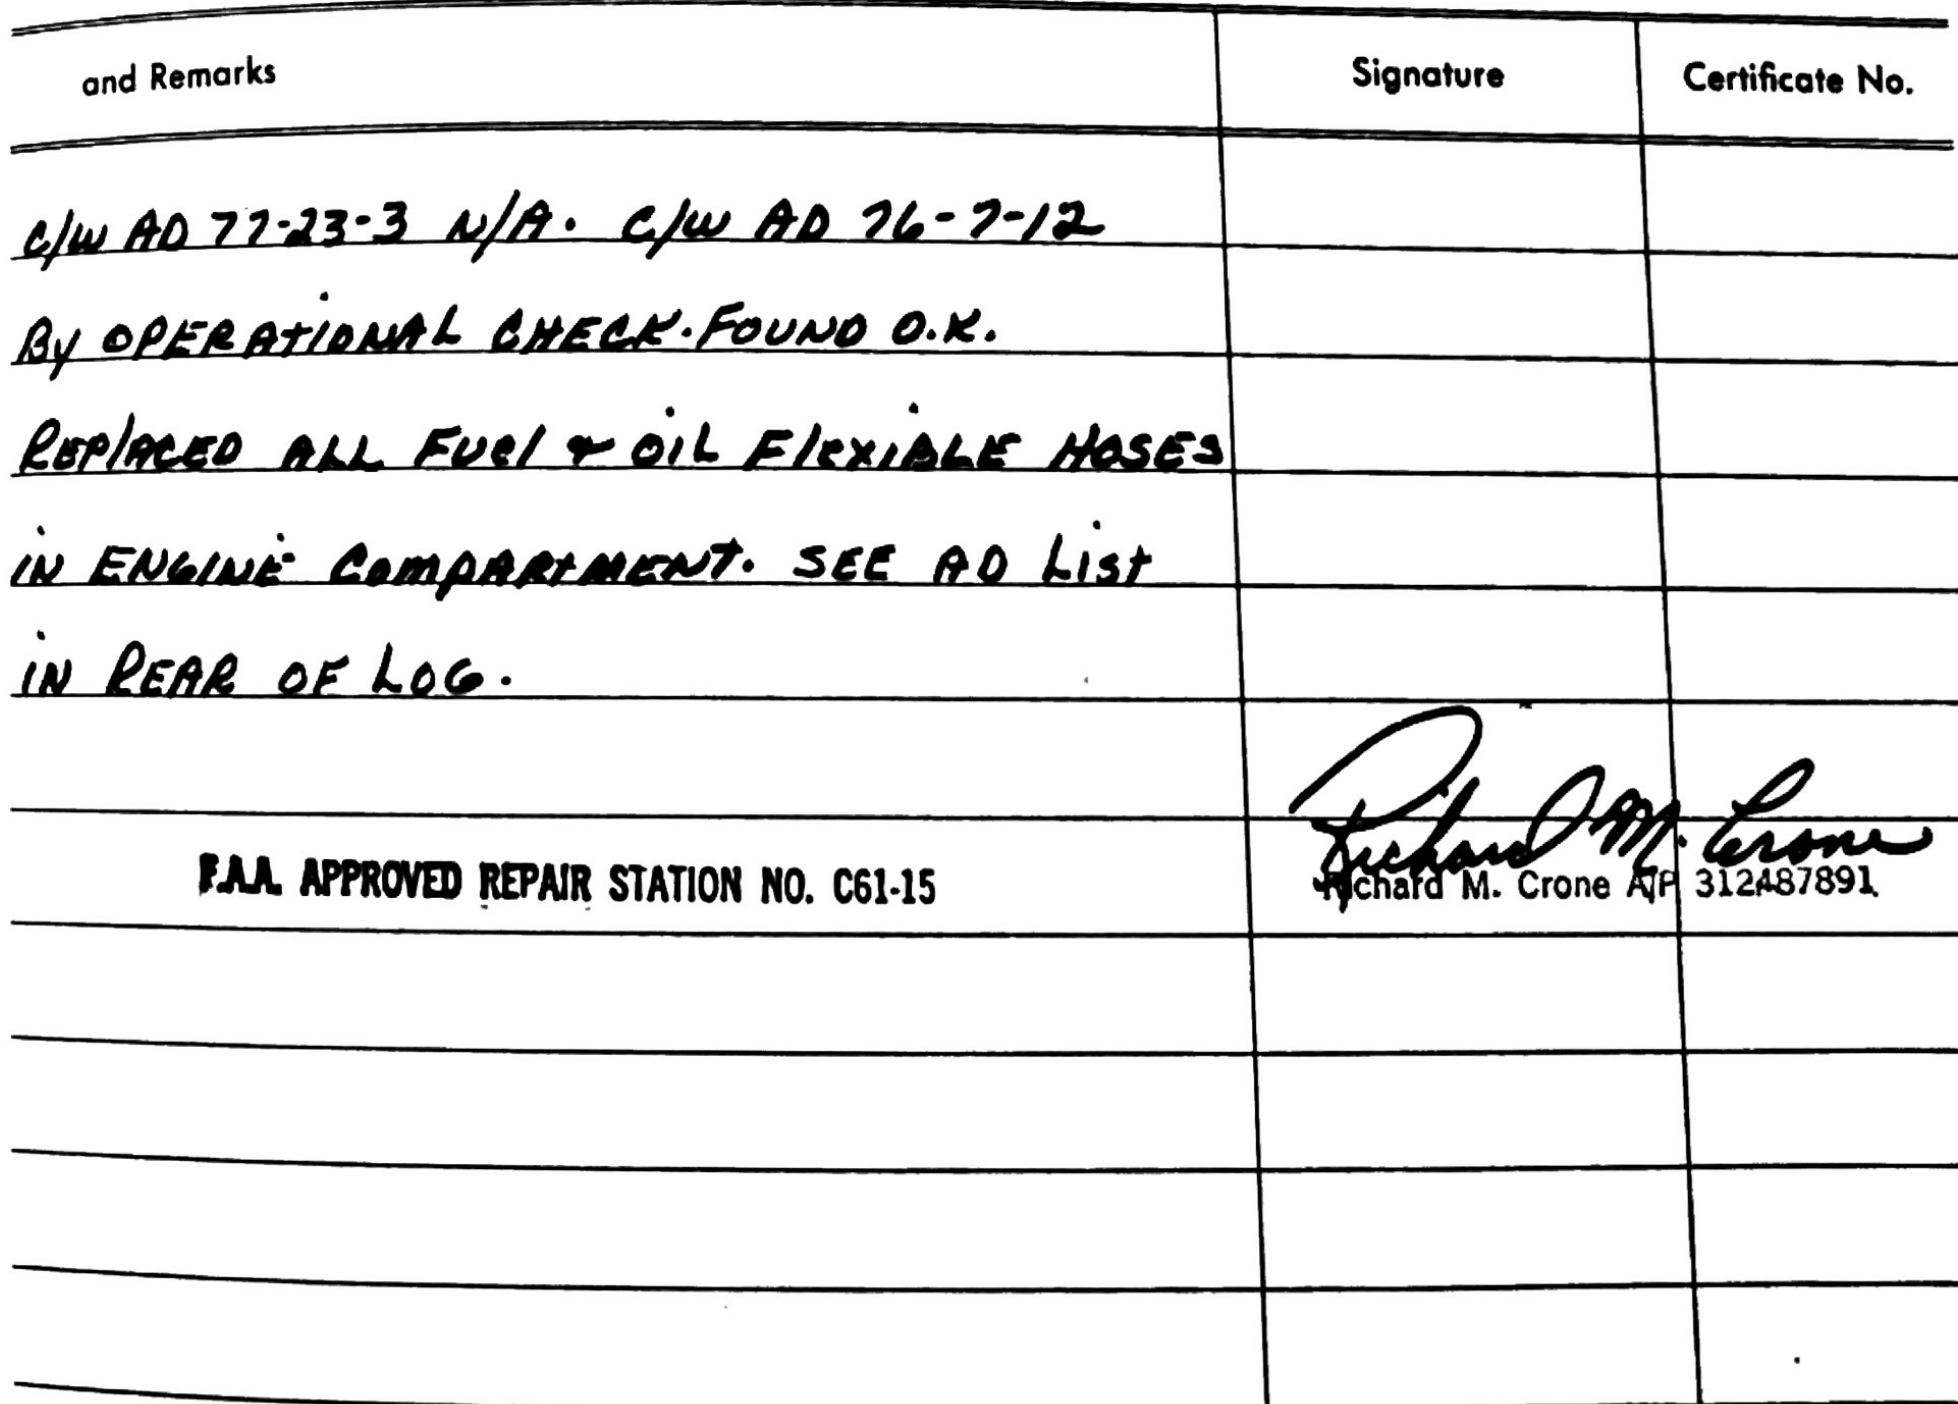 and Remarks Signature Certificate No.
C/W AD 77-23-3 N/A. C/W AD 76-7-12
By OPERATIONAL CHECK. FOUND O.K.
REPlACED ALL FUel & OIL FlexIBLE HOSES
IN ENGINE COMPARTMENT. SEE AD List
IN REAR OF LOG.
Richard M. Crone
F.A.A. APPROVED REPAIR STATION NO. C61-15 Richard M. Crone A/P 312487891